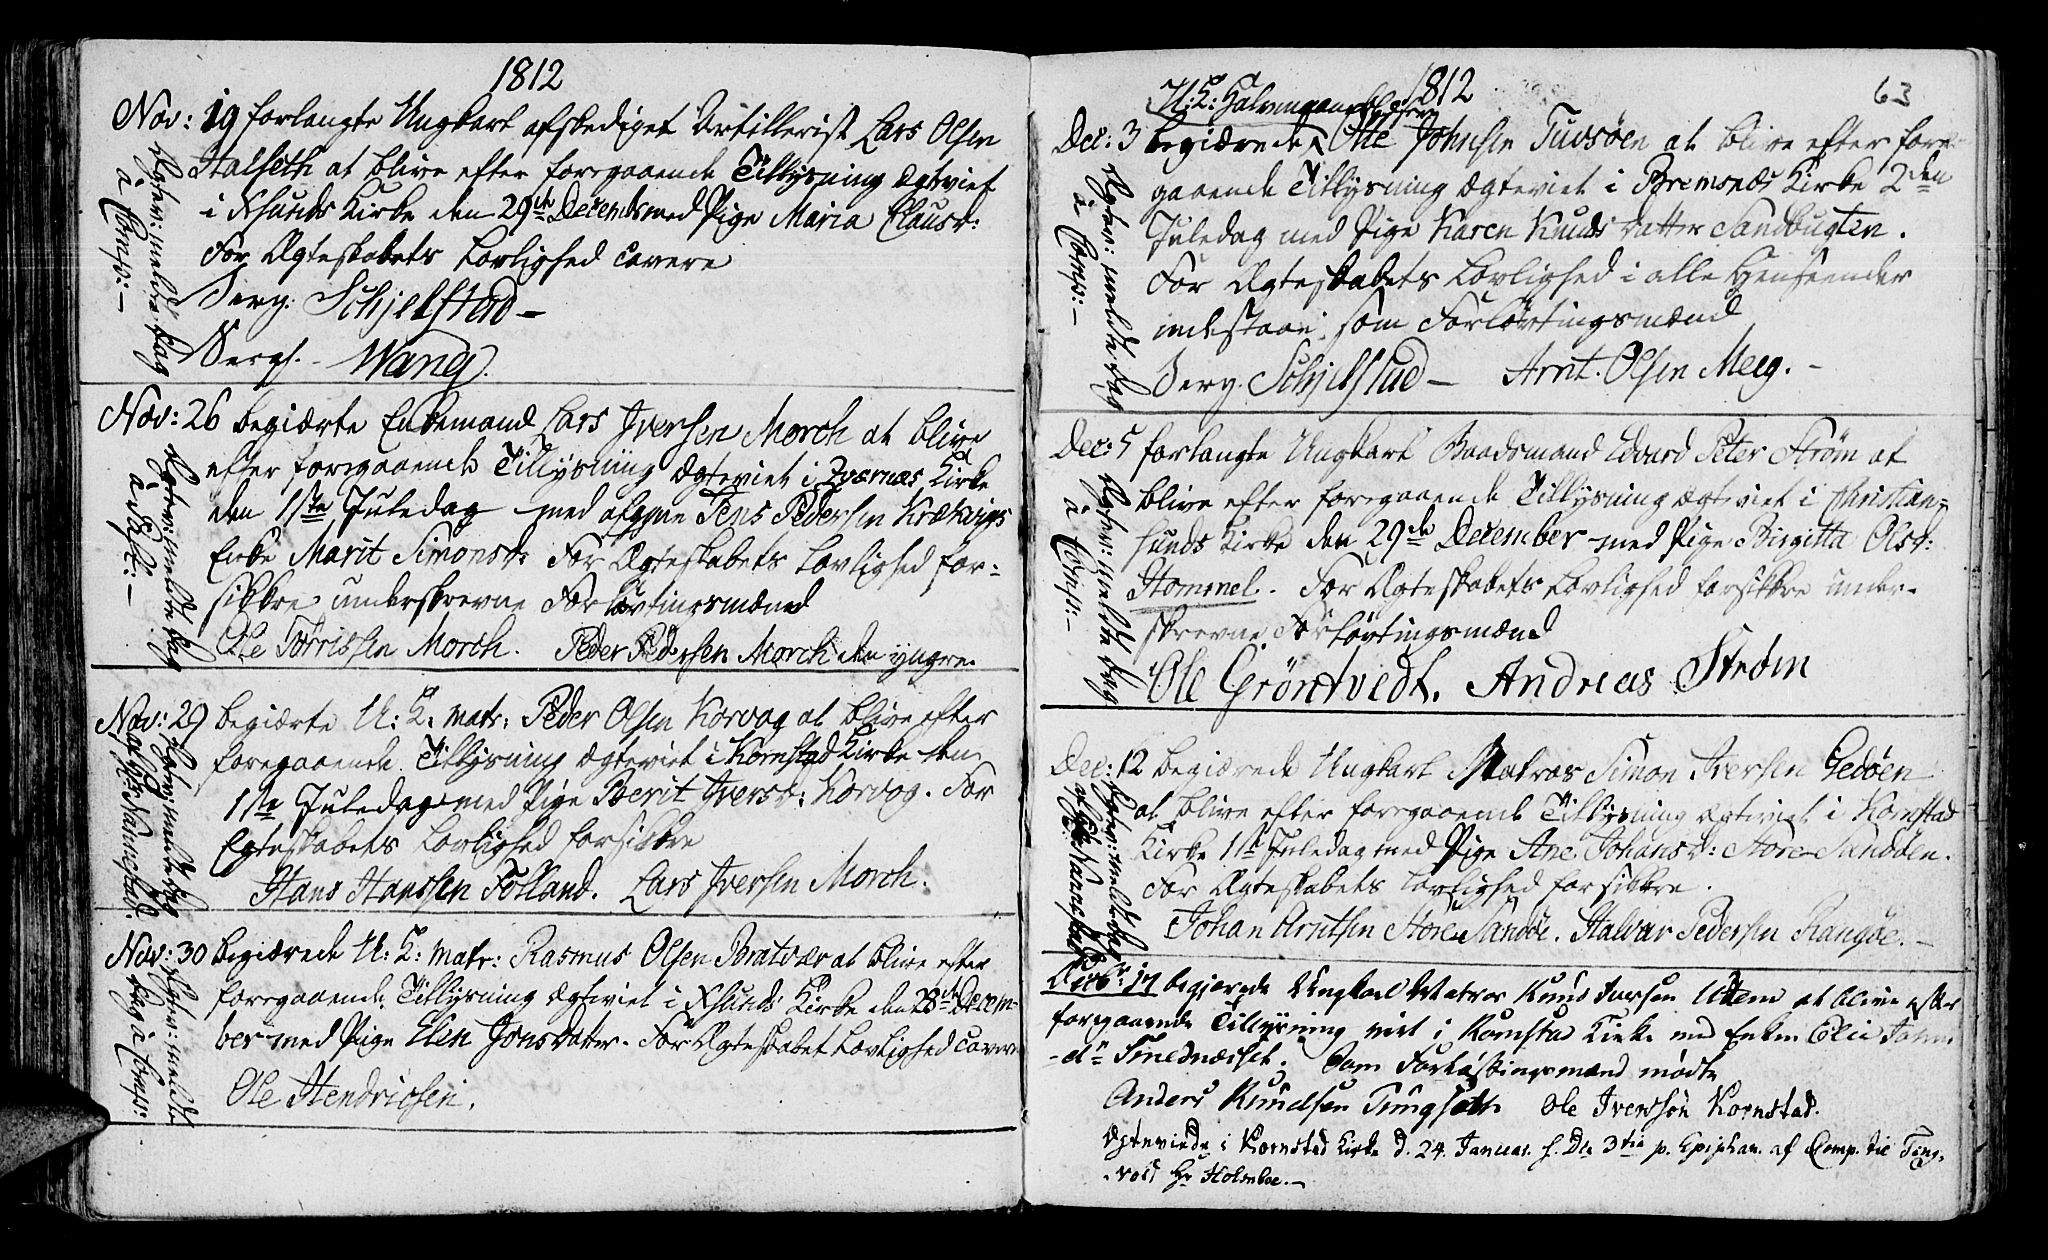 1812
Nov: 19 forlangte Ungkarl afskediget Artillerist Lars Olsen
Halseth at blive efter foregaaende Tillysning ægteviet
i Xsunds Kirke den 29de Decemb med Pige Maria Clausd:
For Ægteskabets Lovlighed cavere
Serg. Schjelstad -
Sergt. - Wang.
Ægter: meldte Dag
à Comp: -
Nov: 26 begiærte Enkemand Lars Iversen Morch at blive
efter foregaaende Tillysning ægteviet i Qværnæs Kirke
den 1ste Juledag med afgagne Jens Pedersen Krækvigs
Enke Marit Simonsdr For Ægteskabets Lovlighed for-
sikkre underskrevne Forlovtingsmænd
Ole Torrissen Morch. Peder Pedersen Morch den yngre.
Ægter: meldte Dag
Nov: 29 begiærte U: K: matr: Peder Olsen Korvog at blive efter
foregaaende Tillysning ægteviet i Kornstad Kirke den
1ste Juledag med Pige Berit Iversd: Korvog. For
Egteskabets Lovlighed forsikkre
Hans Hanssen Folland. Lars Iversen Morch.
Ægter: meldte Dag
Nov: 30 begiærede U: K: matr: Rasmus Olsen Bratvær at blive efter
foregaaende Tillysning ægteviet i Xsunds Kirke den 28de Decem-
ber med Pige Elen Jons Datter. For Ægteskabet Lovlighed cavere
Ole Hendricsen.
Ægter: meldte
Dag à Comp:
1812
63
U: K:
Dec: 3 begiærede Ole Johnsen Tuvsøen at blive efter fore-
gaaende Tillysning ægteviet i Bremsnæs Kirke 2den
Juledag med Pige Karen Knuds Datter Sandbugten.
For Ægteskabets Lovlighed i alle Henseender
indestaae som Forlovtingsmænd
Serg. Schjelstad - Arnt. Olsen Meeg. -
Ægter: meldte Dag
à Comp: -
Dec: 5 forlangte Ungkarl Baadsmand Edvard Peter Strøm at
blive efter foregaaende Tillysning ægteviet i Christian-
sunds Kirke den 29de December med Pige Birgitta Olsd:
Hommel. For Ægteskabets Lovlighed forsikkre under-
skrevne Forlovtingsmænd
Ole Gröntvedt. Andreas Strøm
Ægter: meldte Dag
à Comp: -
Dec: 12 begiærede Ungkarl Matros Simon Iversen Gedøen
at blive efter foregaaende Tillysning ægteviet i Kornstad
Kirke 1ste Juledag med Pige Ane Johansd: Store-Sandøen.
For Ægteskabets Lovlighed forsikkre.
Johan Arntsen Store Sandøe. Halvar Pedersen Rangøe. -
Ægter: meldte Dag
Decbr: 17 begjærede Ungkarl Matros Knud Iversen Udem at blive efter
foregaaende Tillysning viet i Kornstad Kirke med Enken
-dr Smednæsset. Som Forlovtingsmænd mødte
Anders Knudsen Tungset Ole Iversøn Kornstad.
Ægteviede i Kornstad Kirke d. 24. Januar. 3tia p. Epiphan. af Comp. til Ting-
-vold Hr Holmboe. -